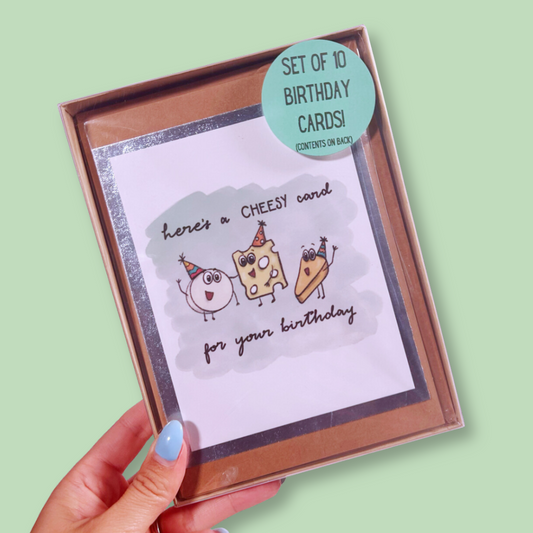 SET OF 10
BIRTHDAY
CARDS!
(CONTENTS ON BACK)
here's a CHEESY card
for your birthday